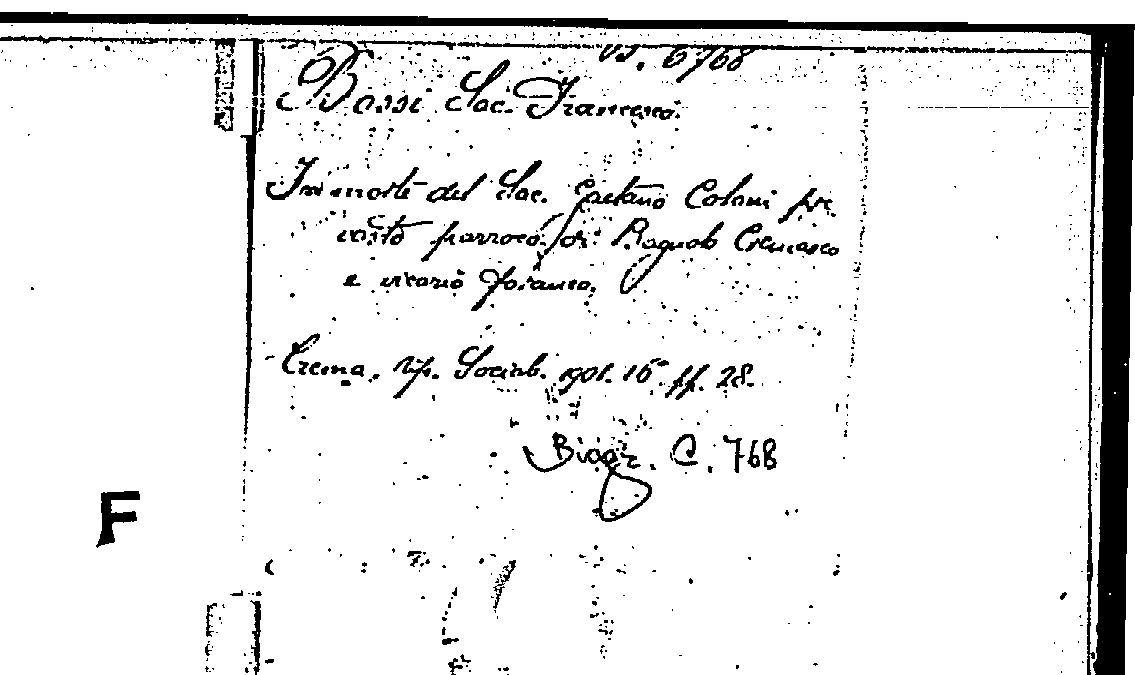 6768
Bossi Sac. Francesco.
In morte del Sac. Gaetano Coloni pre
vosto parroco di Bagnolo Cremasco
e vicario foraneo.
Crema, tip. Sociale. 1901. 16° pp. 28.
Biogr. C. 768
F